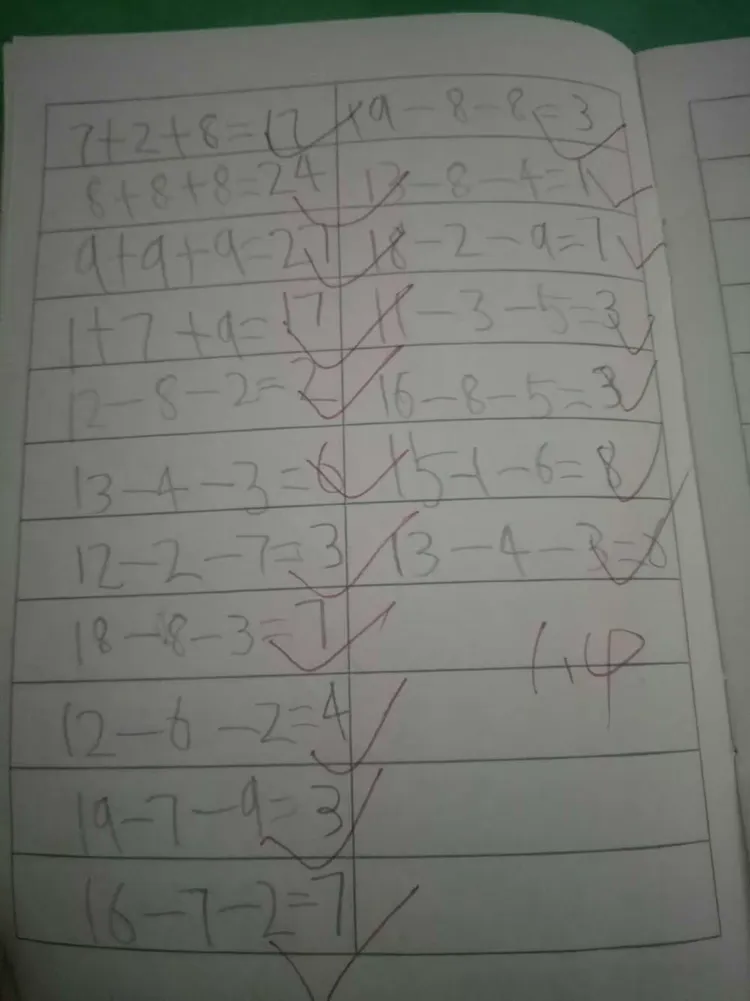 7+2+8=17
8+8+8=24
9+9+9=27
1+7+9=17
12-8-2=2
13-4-3=6
12-2-7=3
18-8-3=7
12-6-2=4
19-7-9=3
16-7-2=7
19-8-8=3
13-8-4=1
18-2-9=7
11-3-5=3
16-8-5=3
15-1-6=8
13-4-3=
1.4